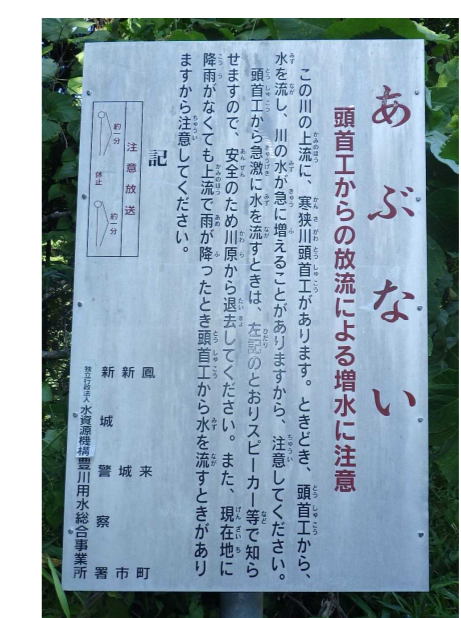 あぶない
頭首工からの放流による増水に注意
この川の上流に、寒狭川頭首工があります。ときどき、頭首工から、
水を流し、川の水が急に増えることがありますから、注意してください。
頭首工から急激に水を流すときは、左記のとおりスピーカー等で知ら
せますので、安全のため川原から退去してください。また、現在地に
降雨がなくても上流で雨が降ったとき頭首工から水を流すときがあり
ますから注意してください。
記
注意放送
約一分
休止
約一分
鳳来町
新城市
新城警察署
独立行政法人水資源機構豊川用水総合事業所